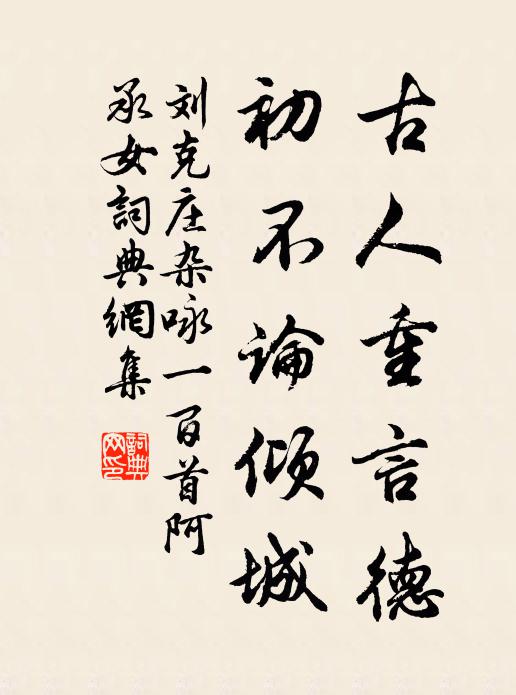 古人重言德
初不論傾城
刘克庄杂咏一百首阿
承女詞典網集
詞典
网印